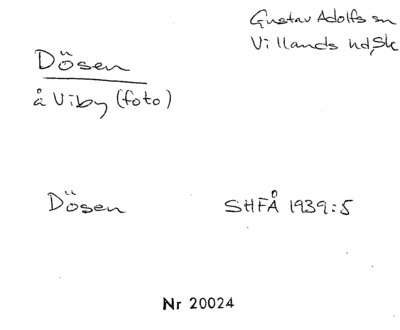 Gustav Adolfs sn
Villands hd, Sk
Dösen
å Viby (foto)
Dösen
SHFÅ 1939:5
Nr 20024